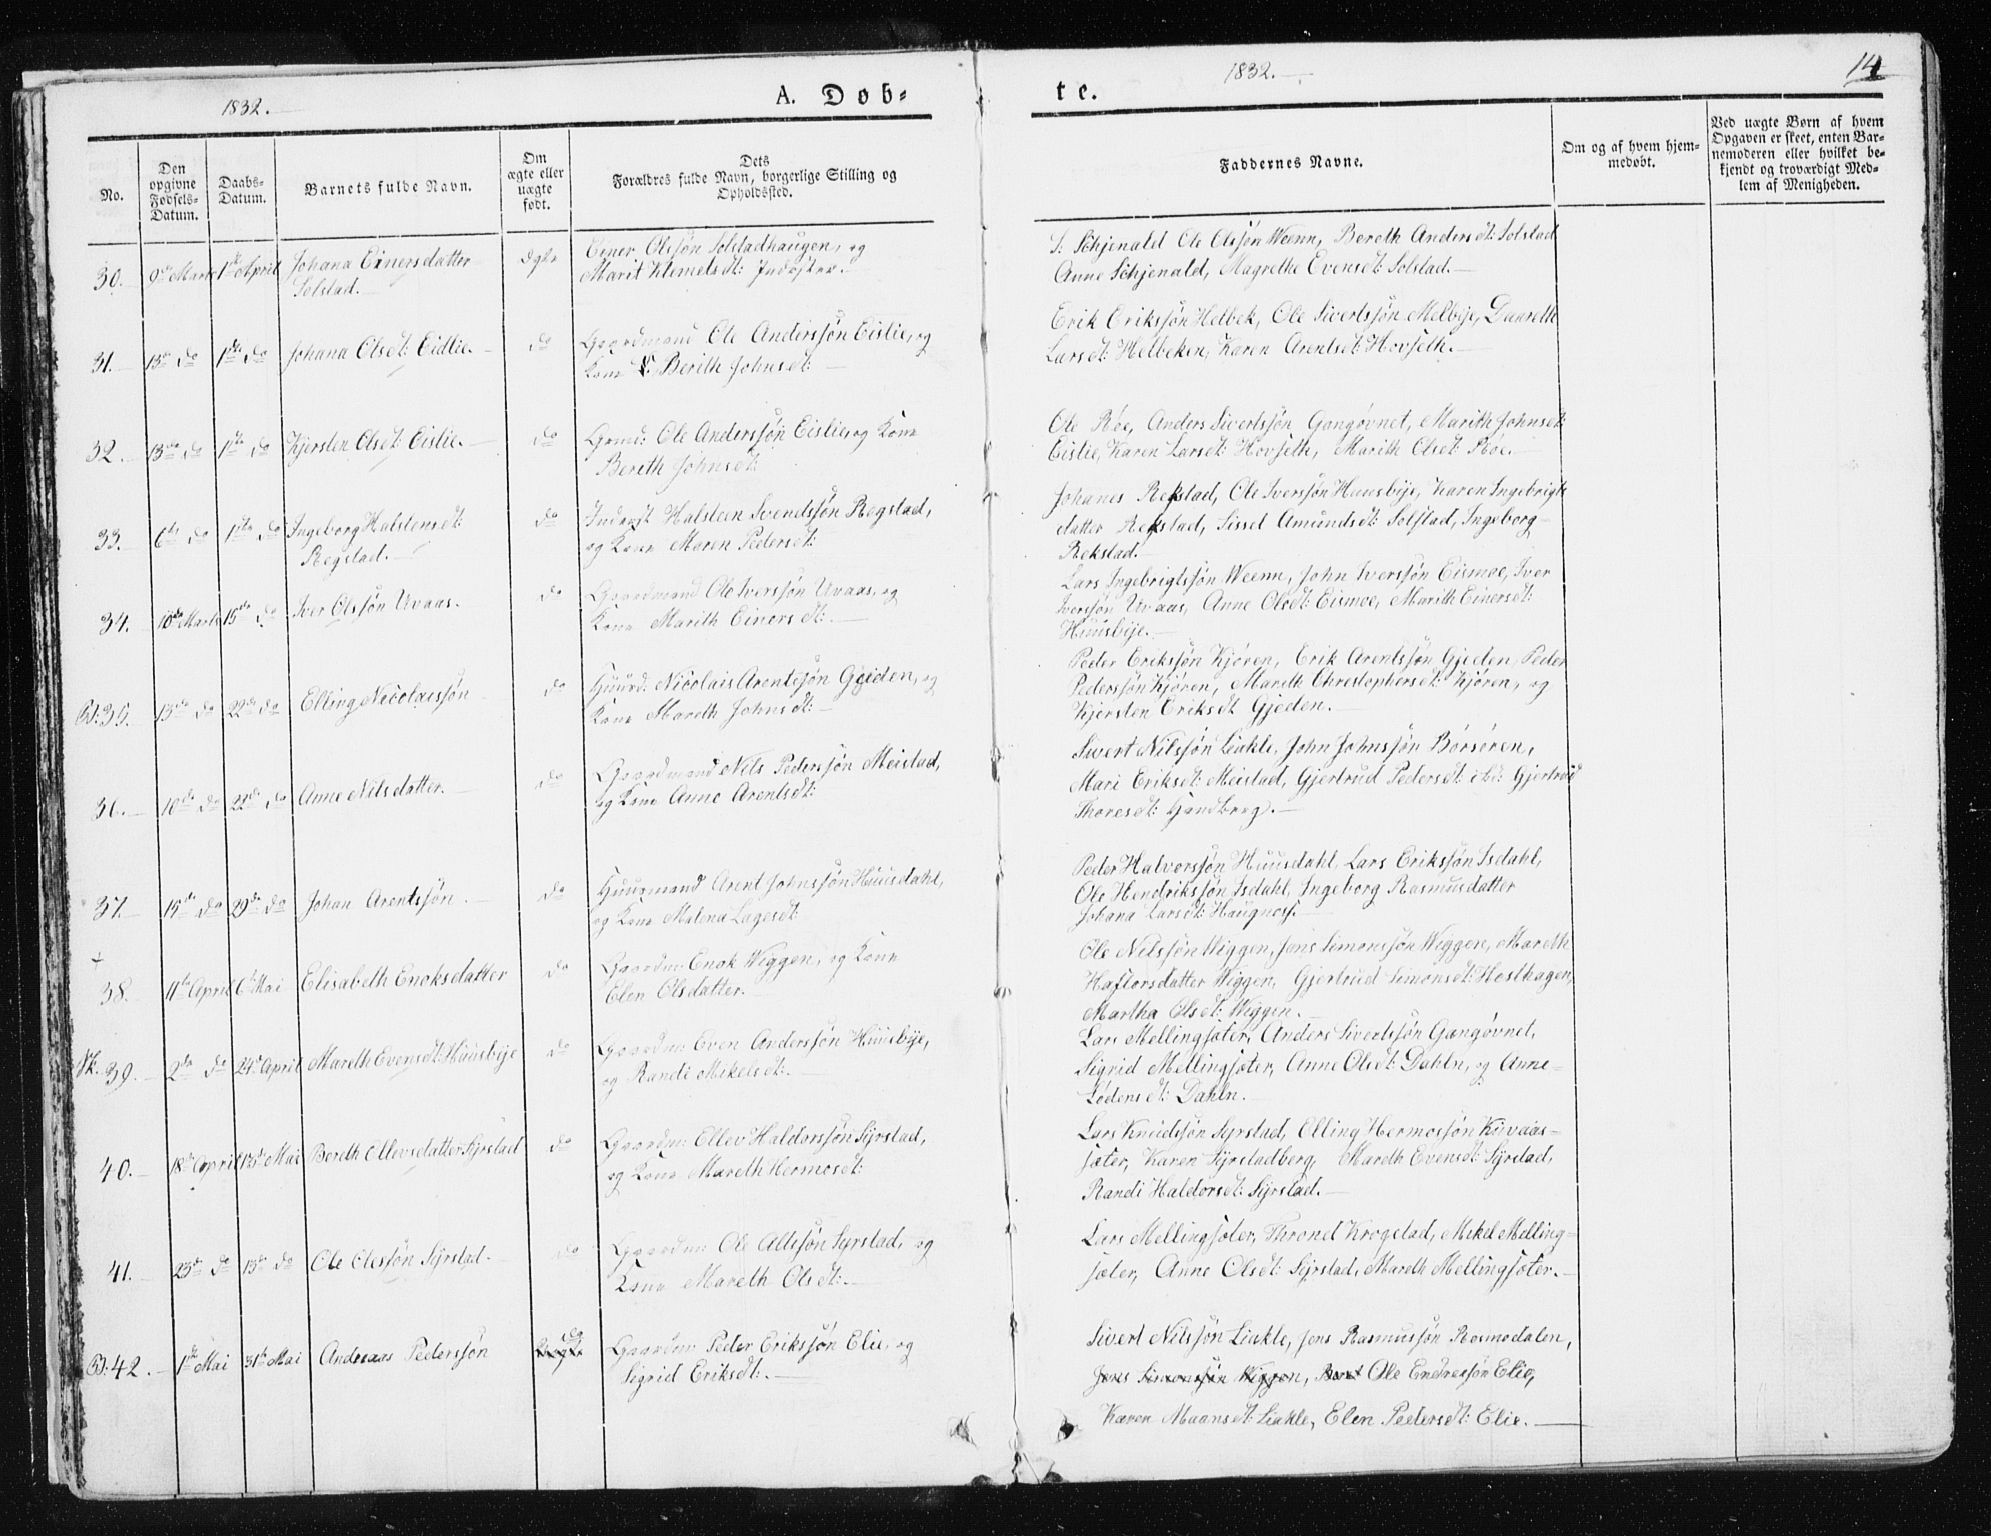 1832.
A. Døb-
te.
1832.
14
No.
Den opgivne Fødsels-Datum.
Daabs-Datum.
Barnets fulde Navn.
Om ægte eller uægte født.
Dets Forældres fulde Navn, borgerlige Stilling og Opholdssted.
Faddernes Navne.
Om og af hvem hjemmedøbt.
Ved uægte Børn af hvem Opgaven er skeet, enten Barnemoderen eller hvilket bekjendt og troværdigt Medlem af Menigheden.
30. 9de Marts 1ste April Johana Einersdatter Solstad.
Einer Olssøn Solstadhaugen, og
Marit Klemetsdt: Inderster.
S: Schjenald Ole Olssøn Weenn, Bereth Andersdt: Solstad
Anne Schjenald, Magrethe Evensdt: Solstad.
31. 13de do 1ste do Johana Olsdt: Eidlie. do
Gaardmand Ole Anderssøn Eislie, og
Kone Berith Johnsdt:
Erik Erikssøn Helbek, Ole Sivertssøn Melbye, Daareth
Larsdt: Helbeken, Karen Arentsdt: Hovseth.
32. 13de do 1ste do Kjersten Olsdt: Eislie. do
Grmd: Ole Anderssøn Eislie, og Kone
Bereth Johnsdt:
Ole Røe, Anders Sivertssøn Gangøvnet, Marith Johnsdt:
Eislie, Karen Larsdt: Hovseth, Marith Olsdt: Røe.
33. 6te do 1ste do Ingeborg Halstensdt: Regstad. do
Inderst Halsteen Svendssøn Regstad,
og Kone Maren Pedersdt:
Johanes Rekstad, Ole Iverssøn Huusbye, Karen Ingebrigts
datter Rekstad, Sissel Amundsdt: Solstad, Ingeborg
Rekstad.
34. 10de Marts 15de do Iver Olssøn Uvaas. do
Gaardmand Ole Iverssøn Uvaas, og
Kone Marith Einersdt:
Lars Ingebrigtssøn Weenn, John Iverssøn Eismoe, Iver
Iverssøn Uvaas, Anne Olsdt: Eismoe, Marith Einersdt:
Huusbye.
35. 13de do 22de do Elling Nicolaissøn do
Huusmd: Nicolais Arentssøn Gjeiden, og
Kone Mareth Johnsdt:
Peder Erikssøn Kjøren, Erik Arentssøn Gjeden, Peder
Pederssøn Kjøren, Mareth Christophersdt: Kjøren, og
Kjersten Eriksdt Gjeden.
36. 10de do 22de do Anne Nilsdatter. do
Gaardmand Nils Pederssøn Meistad,
og Kone Anne Arentsdt:
Sivert Nilssøn Liakle, John Johnssøn Børsøren,
Mari Eriksdt: Meistad, Gjertrud Pedersdt: ibd: Gjertrud
Thoresdt: Handberg.
37. 15de do 29de do Johan Arentssøn. do
Huusmand Arent Johnssøn Huusdahl,
og Kone Malena Lagesdt:
Peder Halvorssøn Huusdahl, Lars Erikssøn Isdahl,
Ole Hendrikssøn Isdahl, Ingeborg Rasmusdatter
Johana Larsdt: Haugnæss.
38. 11te April 6te Mai Elisabeth Enoksdatter do
Gaardm: Enok Wiggen, og Kone
Elen Olsdatter.
Ole Nilssøn Wiggen, Jens Simonssøn Wiggen, Mareth
Haftorsdatter Wiggen, Gjertrud Simonsdt: Hosthagen,
Martha Olsdt: Wiggen.
Sk. 39. 2de do 24de April Mareth Evensdt: Huusbye do
Gaardm: Even Anderssøn Huusbye,
og Randi Mikelsdt:
Lars Mellingsæter, Anders Sivertssøn Gangøvnet,
Sigrid Mellingsæter, Anne Olsdt: Dahln, og Anne
Lødensdt: Dahln.
40. 18de April 13de Mai Bereth Ellevsdatter Syrstad do
Gaardm: Ellev Haldorssøn Syrstad,
og Kone Mareth Hermosdt:
Lars Knudssøn Syrstad, Elling Hermossøn Kuvaas-
sæter, Karen Syrstadberg, Mareth Evensdt: Syrstad,
Randi Haldorsdt: Syrstad.
41. 23de do 13de do Ole Olessøn Syrstad. do
Gaardm: Ole Altssøn Syrstad, og
Kone Mareth Olsdt:
Lars Mellingsæter, Thrond Krogstad, Mikel Melling-
sæter, Anne Olsdt: Syrstad, Mareth Mellingsæter.
42. 1ste Mai 31te Mai Andreas Pederssøn do
Gaardm: Peder Erikssøn Elie, og
Sigrid Eriksdt:
Sivert Nilssøn Liakle, Jens Rasmussøn Rosmodalen,
Jens Simonssøn Wiggen, Ole Endressøn Elie,
Karen Maansdt: Liakle, Elen Pedersdt: Elie.